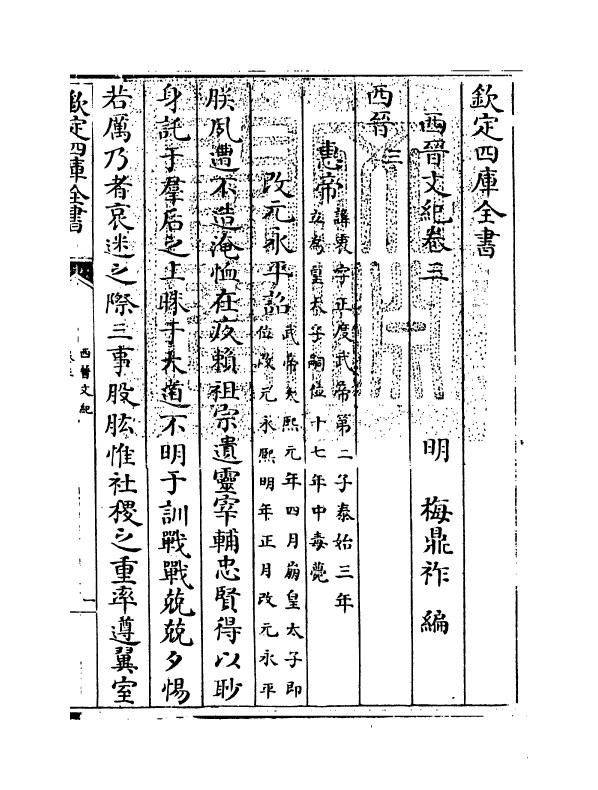 欽定四庫全書
西晉文紀卷三
明　梅鼎祚　編
西晉三
惠帝諱衷字正度武帝第二子泰始三年
立為皇太子嗣位十七年中毒薨
改元永平詔武帝太熙元年四月崩皇太子即
位改元永熙明年正月改元永平
朕夙遭不造淹恤在疚賴祖宗遺靈宰輔忠賢得以眇
身託于羣后之上昧于大道不明于訓戰戰兢兢夕惕
若厲乃者哀迷之際三事股肱惟社稷之重率遵翼室
欽定四庫全書
西晉文紀
卷三
一